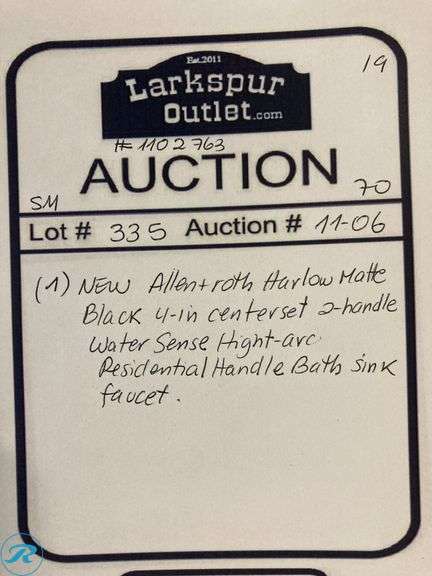 Est.2011
Larkspur
Outlet.com
19
# 1102763
AUCTION
SM
70
Lot # 335 Auction # 11-06
(1) NEW Allen+roth Harlow Matte
Black 4-in centerset 2-handle
Water Sense Hight-arc
Residential Handle Bath sink
faucet.
R